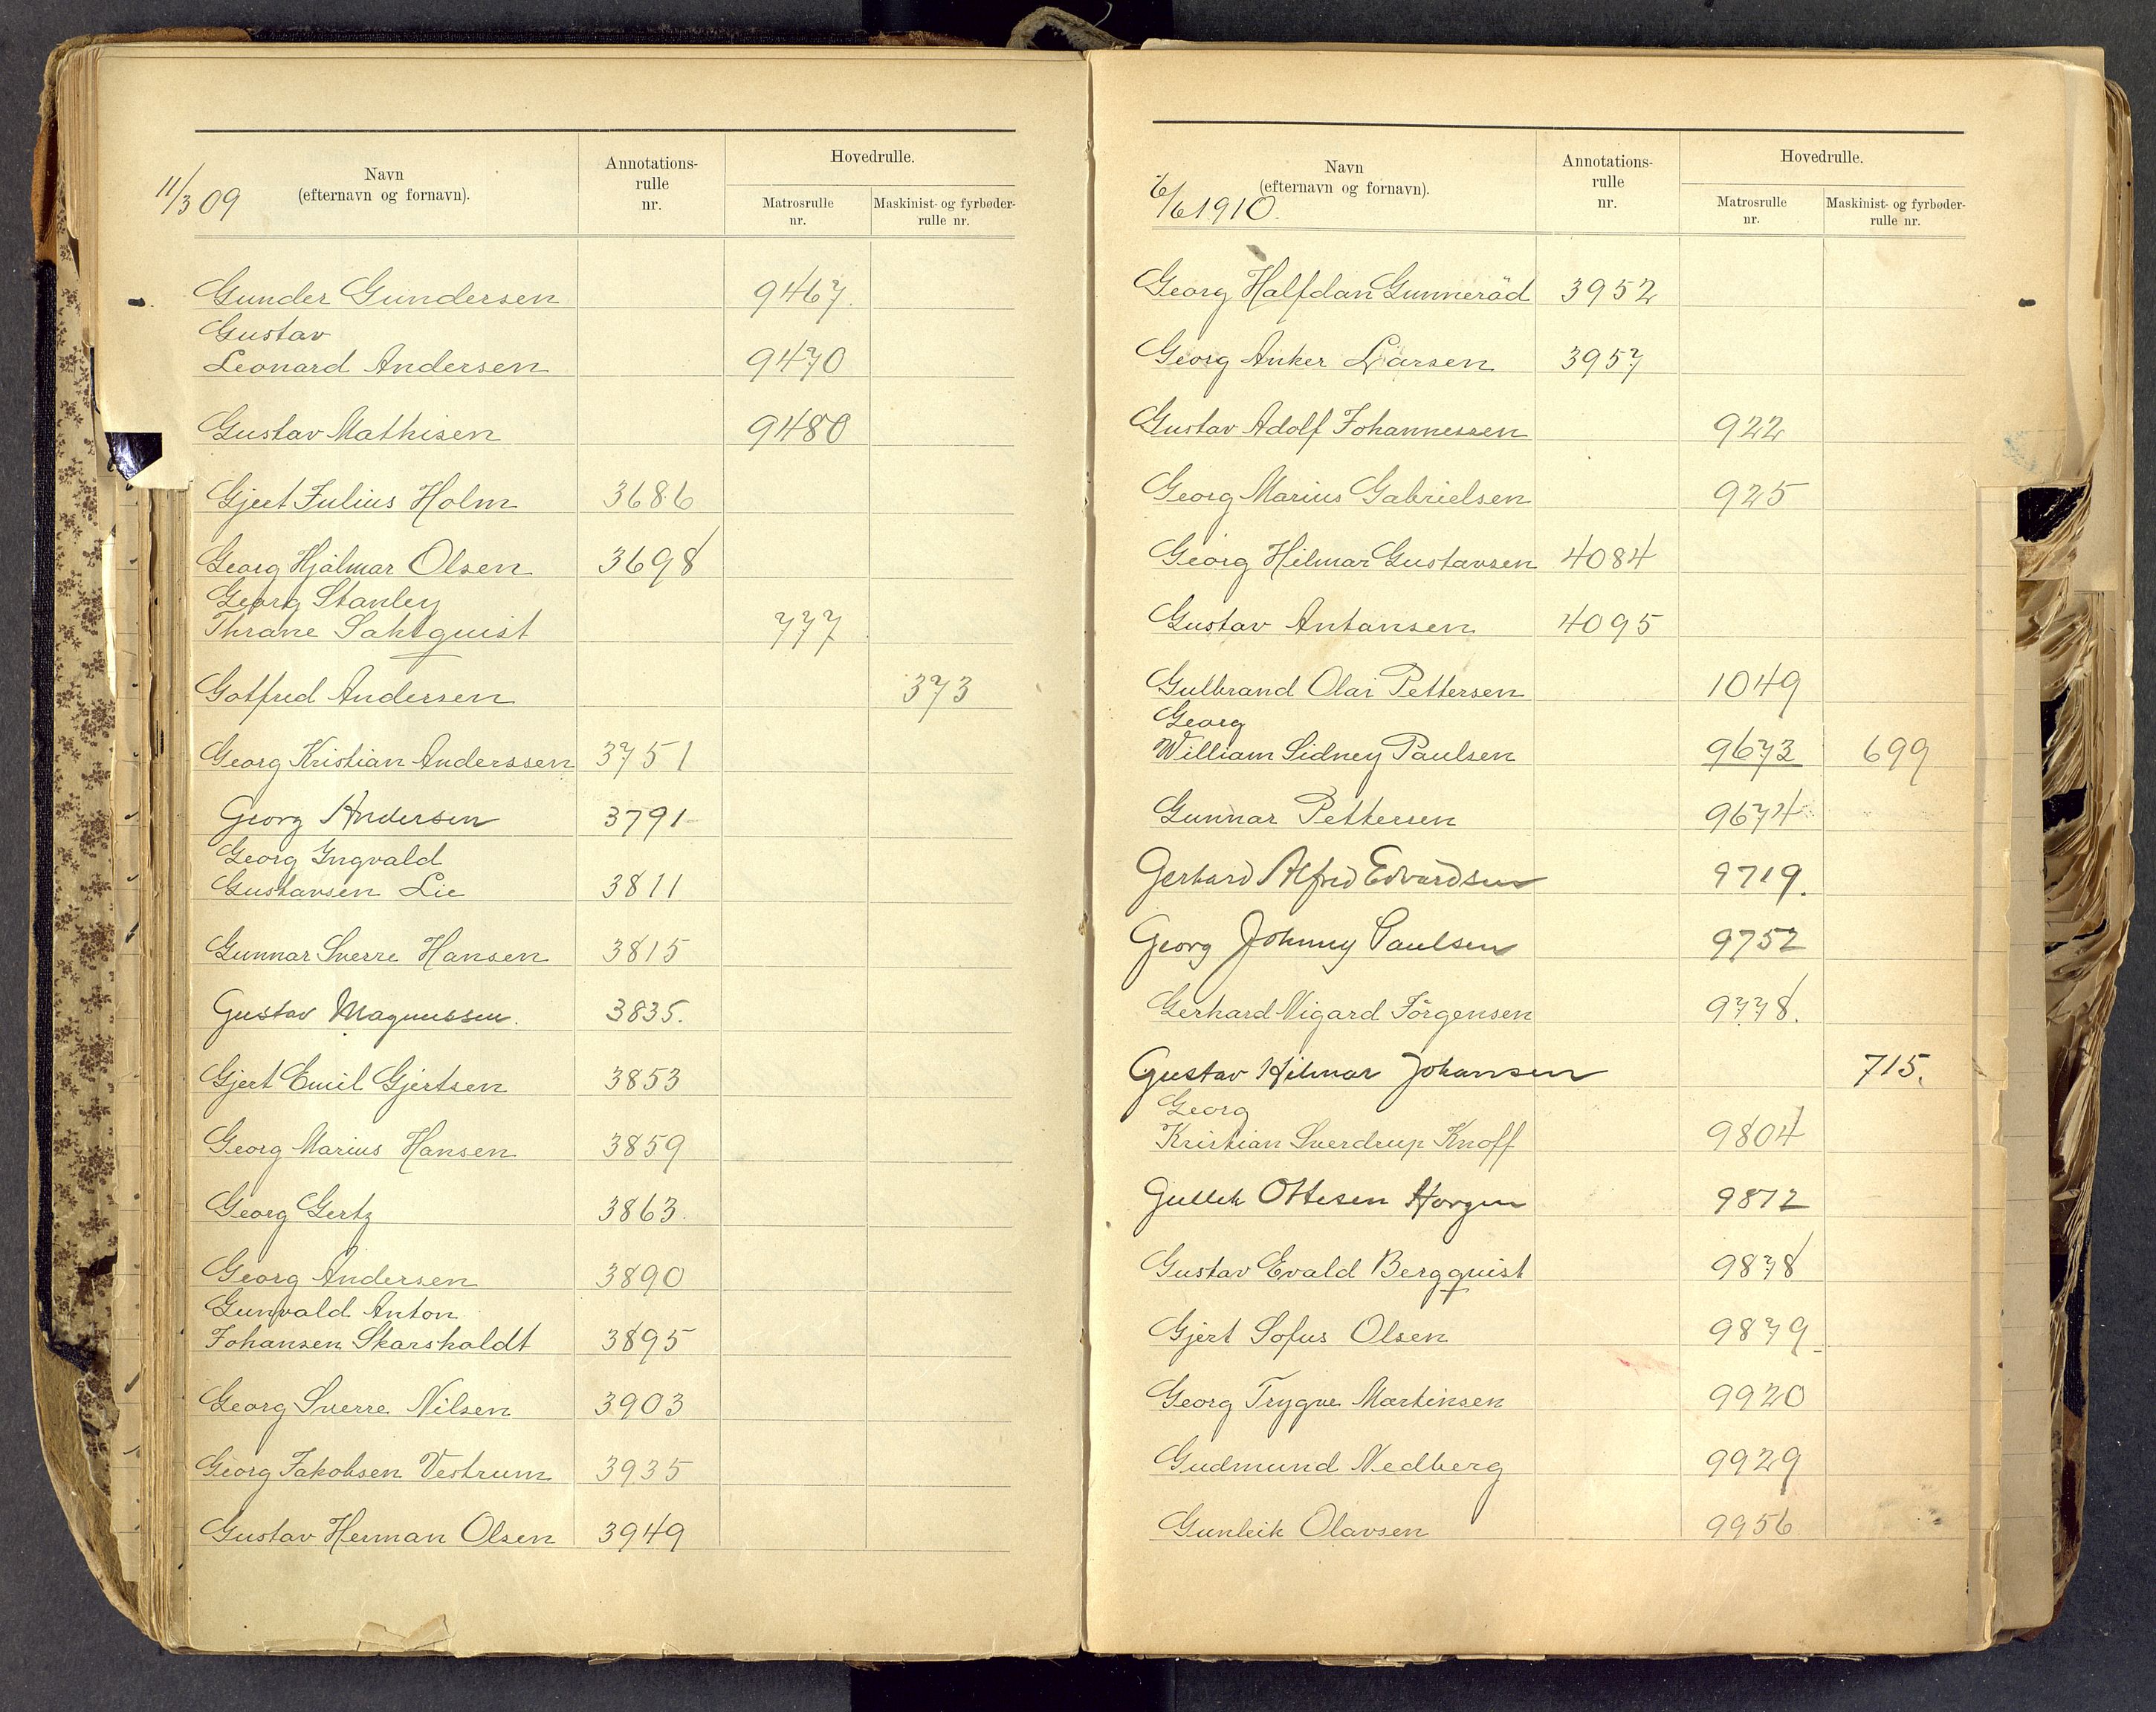 11/3 09
Navn
(efternavn og fornavn).
Annotations-
rulle
nr.
Hovedrulle.
Matrosrulle
nr.
Maskinist- og fyrbøder-
rulle nr.
Gunder Gundersen 9467.
Gustav
Leonard Andersen 9470
Gustav Mathisen 9480
Gjert Julius Holm 3686
Georg Hjalmar Olsen 3698
Georg Stanley
Thrane Sahlquist 777
Gotfred Andersen 373
Georg Kristian Anderssen 3751
Georg Andersen 3791
Georg Ingvald
Gustavsen Lie 3811
Gunnar Sverre Hansen 3815
Gustav Magnussen. 3835.
Gjert Emil Gjertsen 3853
Georg Marius Hansen 3859
Georg Gertz 3863.
Georg Andersen 3890
Gunvald Anton
Johansen Skarsholdt 3895
Georg Sverre Nilsen 3903
Georg Jakobsen Vestrum 3935
Gustav Herman Olsen 3949
6/6 1910.
Navn
(efternavn og fornavn).
Annotations-
rulle
nr.
Hovedrulle.
Matrosrulle
nr.
Maskinist- og fyrbøder-
rulle nr.
Georg Halfdan Gunneröd 3952
Georg Anker Larsen 3957
Gustav Adolf Johannessen 922
Georg Marius Gabrielsen 925
Georg Hilmar Gustavsen 4084
Gustav Antansen 4095
Gulbrand Olai Pettersen 1049
Georg
William Sidney Paulsen 9673 699
Gunnar Pettersen 9674
Gerhard Alfred Edvardsen 9719.
Georg Johnny Paulsen 9752
Gerhard Vigard Jörgensen 9778.
Gustav Hilmar Johansen 715.
Georg
Kristian Sverdrup Knoff 9804
Gullik Ottesen Horgen 9812
Gustav Evald Bergquist 9878
Gjert Sofus Olsen 9879
Georg Trygve Martinsen 9920
Gudmund Vedberg 9929
Gunleik Olavsen 9956